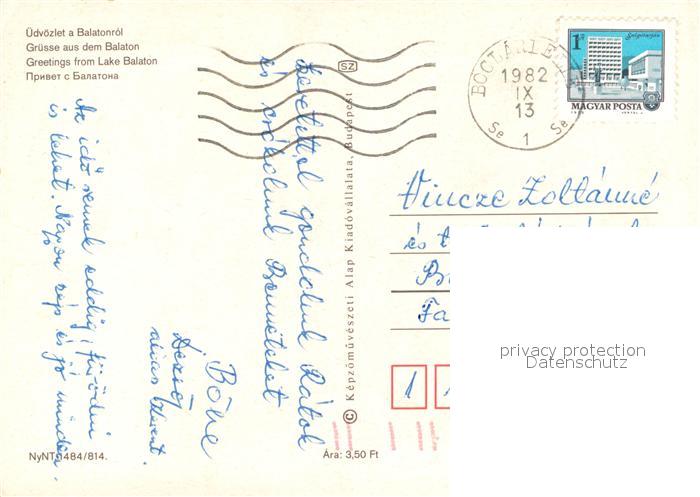 Üdvözlet a Balatonról
Grüsse aus dem Balaton
Greetings from Lake Balaton
Привет с Балатона
Szeretettel gondolunk Rátok
és csókolunk Benneteket
Böbe
Dezső
Az idő remek eddig, fürödni
is lehet. Nagyon szép és jó minden.
NyNT 1484/814.
Ára: 3,50 Ft
SZ
© Képzőművészeti Alap Kiadóvállalata, Budapest
1982
IX
13
Se 1 Se
1 Ft
Salgótarján
MAGYAR POSTA
Vincze Zoltánné
és
B
Fa
1
privacy protection
Datenschutz